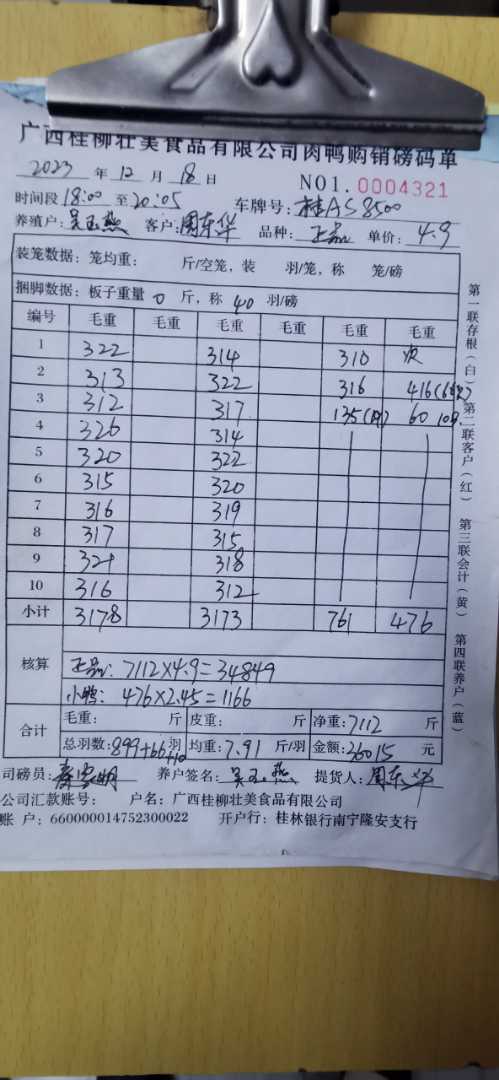 广西桂柳壮美食品有限公司肉鸭购销磅码单
2023 年 12 月 18 日 NO1. 0004321
时间段 18:00 至 20:05 车牌号: 桂AS8500
养殖户: 吴玉燕 客户: 周东华 品种: 正品 单价: 4.9
装笼数据: 笼均重: 斤/空笼, 装 羽/笼, 称 笼/磅
捆脚数据: 板子重量 0 斤, 称 40 羽/磅
编号 毛重 毛重 毛重 毛重 毛重 毛重
1 322 314 310 次
2 313 322 316 416(66只)
3 312 317 135 60 10只
4 326 314
5 320 322
6 315 320
7 316 319
8 317 315
9 321 318
10 316 312
小计 3178 3173 761 476
核算 正品: 7112×4.9=34849
小鸭: 476×2.45=1166
合计 毛重: 斤 皮重: 斤 净重: 7112 斤
总羽数: 899+66+10 羽 均重: 7.91 斤/羽 金额: 36015 元
司磅员: 养户签名: 吴玉燕 提货人: 周东华
公司汇款账号: 户名: 广西桂柳壮美食品有限公司
账 户: 660000014752300022 开户行: 桂林银行南宁隆安支行
第一联存根(白) 第二联客户(红) 第三联会计(黄) 第四联养户(蓝)